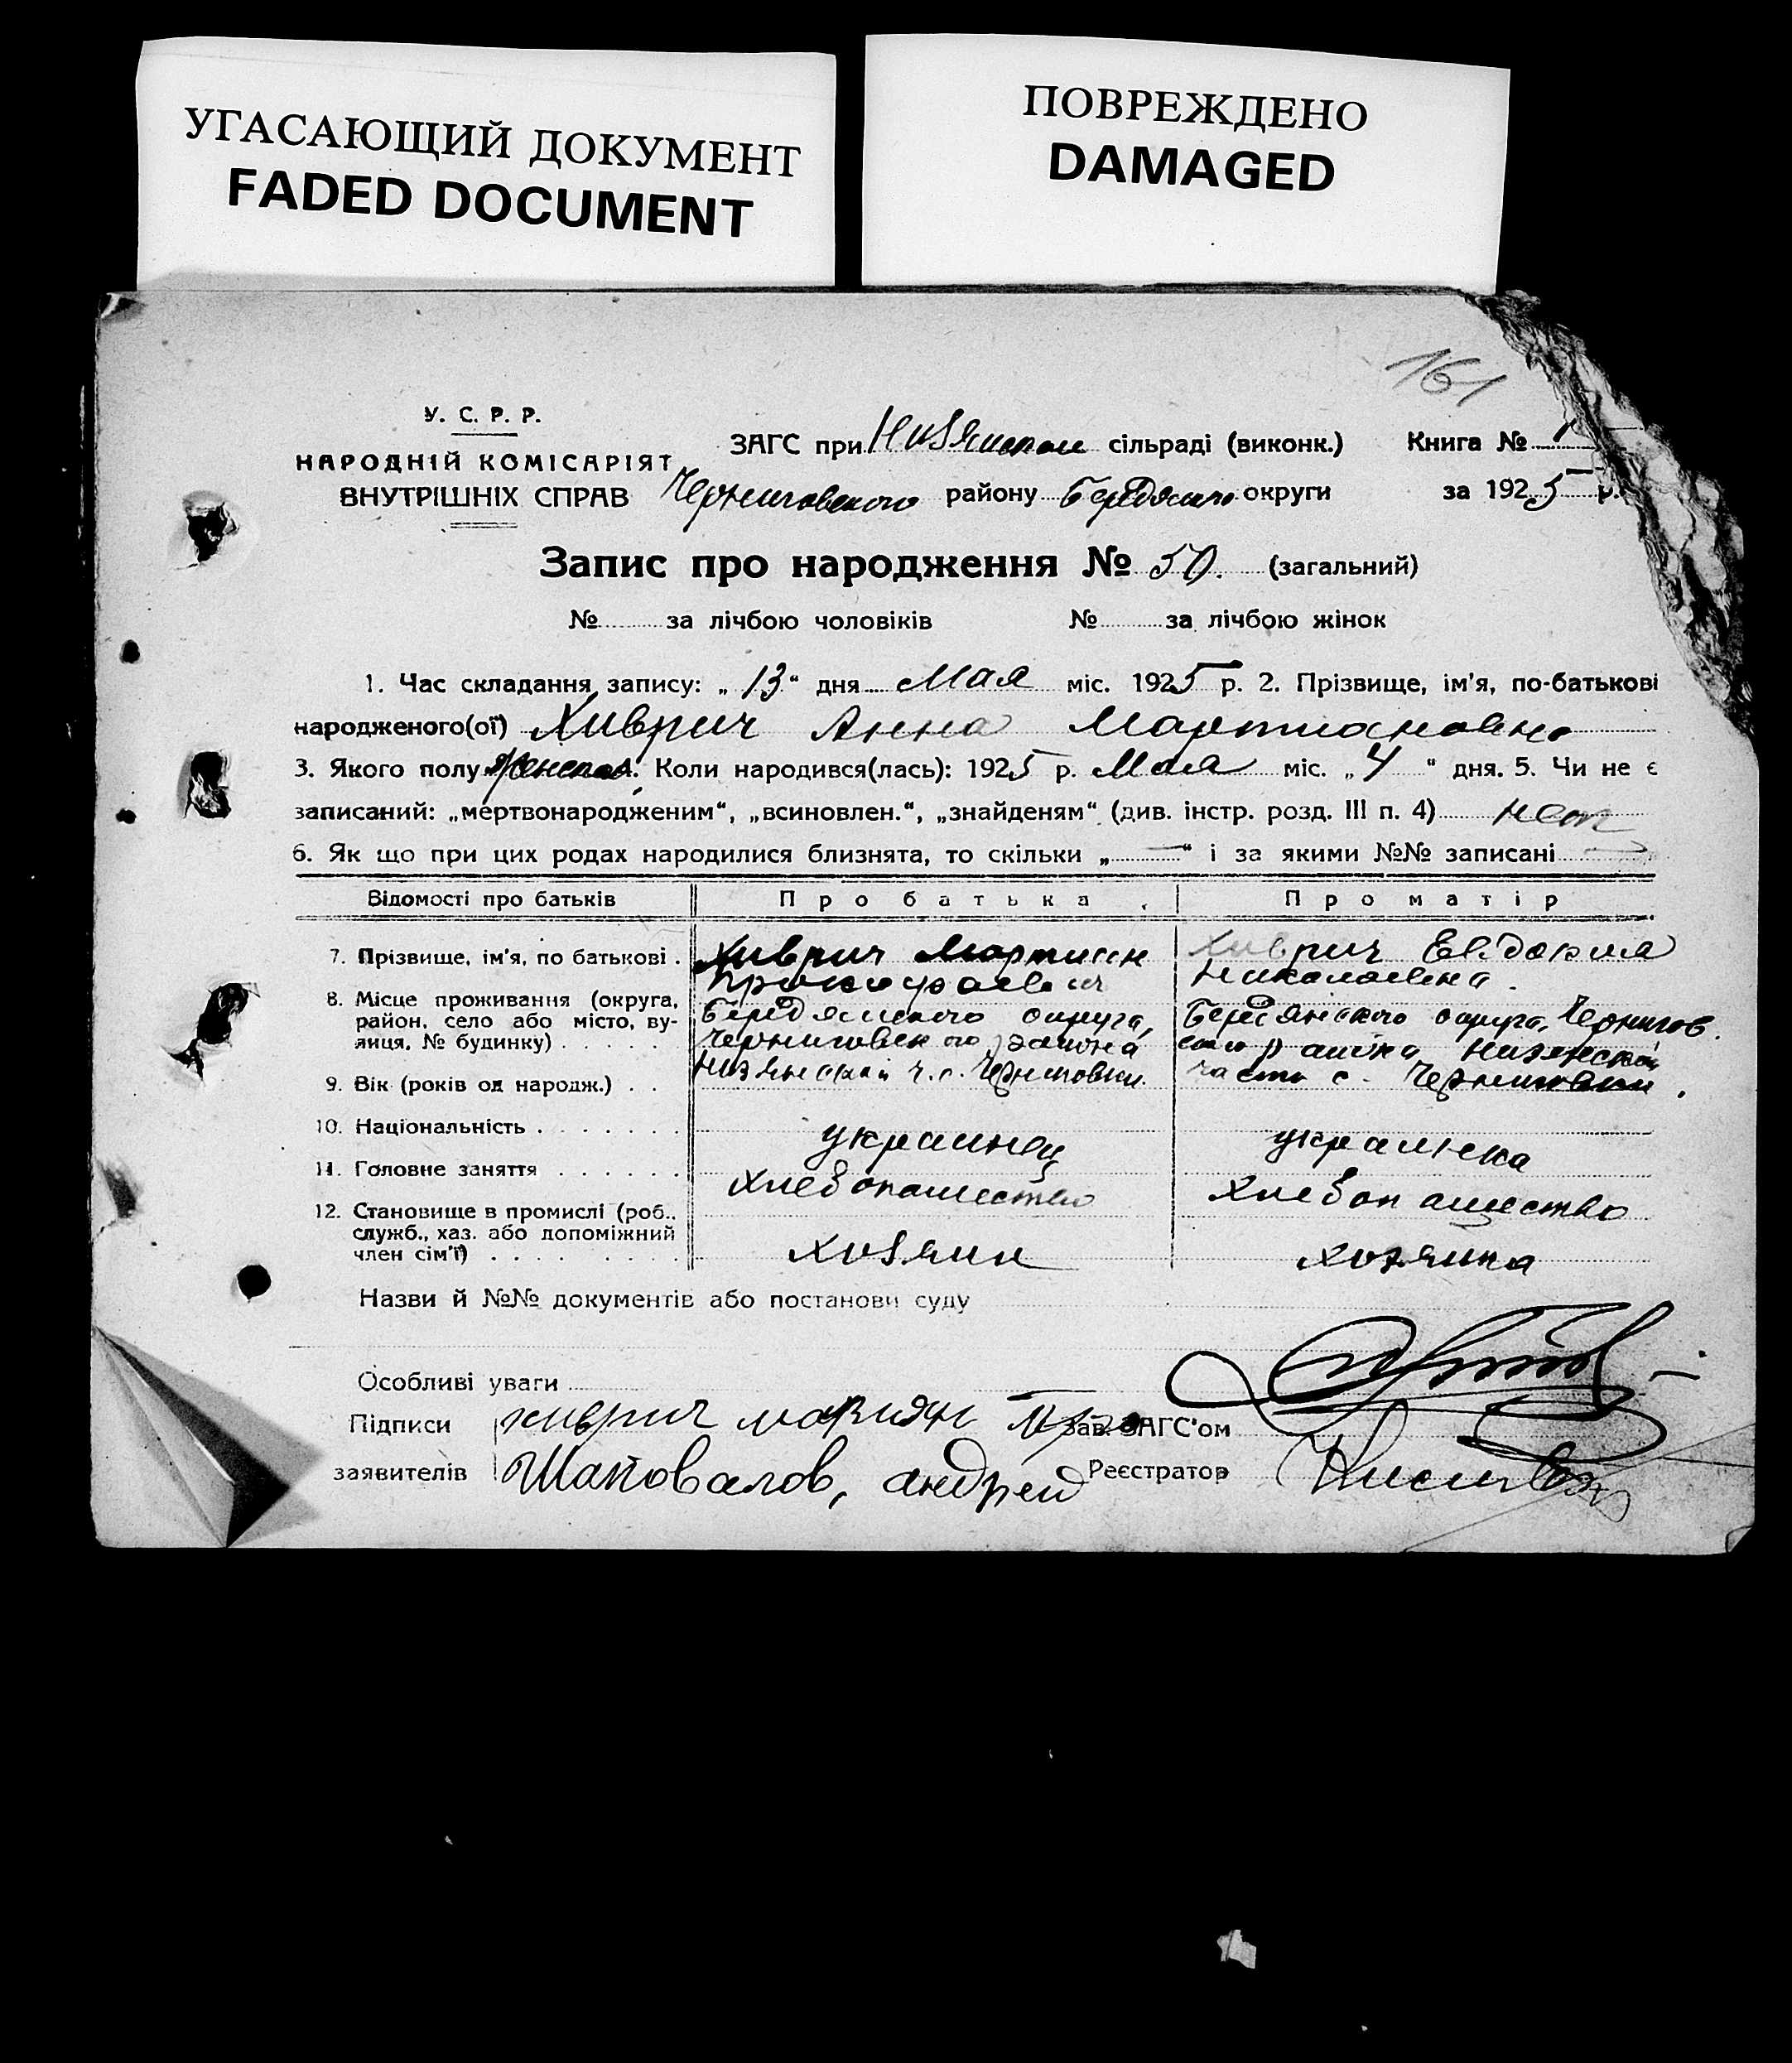 УГАСАЮЩИЙ ДОКУМЕНТ
FADED DOCUMENT
ПОВРЕЖДЕНО
DAMAGED
161
У. С. Р. Р.
НАРОДНІЙ КОМІСАРІЯТ
ВНУТРІШНІХ СПРАВ
ЗАГС при Низянской сільраді (виконк.) Книга № 1
Черниговского району Бердянского округи за 1925 р.
Запис про народження № 50. (загальний)
№ за лічбою чоловіків № за лічбою жінок
1. Час складання запису: „13“ дня Мая міс. 1925 р. 2. Прізвище, ім'я, по-батькові
народженого(ої) Хиврич Анна Мартиановна
3. Якого полу женской 4. Коли народився(лась): 1925 р. Мая міс. „4“ дня. 5. Чи не є
записаний: „мертвонародженим“, „всиновлен.“, „знайденям“ (див. інстр. розд. III п. 4) нет
6. Як що при цих родах народилися близнята, то скільки „—“ і за якими №№ записані —
Відомості про батьків Про батька Про матір
7. Прізвище, ім'я, по батькові . Хиврич Мартиан Хиврич Евдокия
Прокофьевич Николаевна.
8. Місце проживання (округа, район, село або місто, вулиця, № будинку) . . . . . Бердянского округа, Бердянского округа, Чернигов.
Черниговского района ского района Низянской
Низянской ч. с. Черниговки части с. Черниговки.
9. Вік (років од народж.) . .
10. Національність . . . . . . . украинец украинка
11. Головне заняття . . . . . . хлебопашество хлебопашество
12. Становище в промислі (роб., служб., хаз. або допоміжний член сім'ї) . . . . . . . хозяин хозяйка
Назви й №№ документів або постанови суду
Особливі уваги
Підписи хиврич Зав. ЗАГС'ом
заявителів Шаповалов, андрей Реєстратор